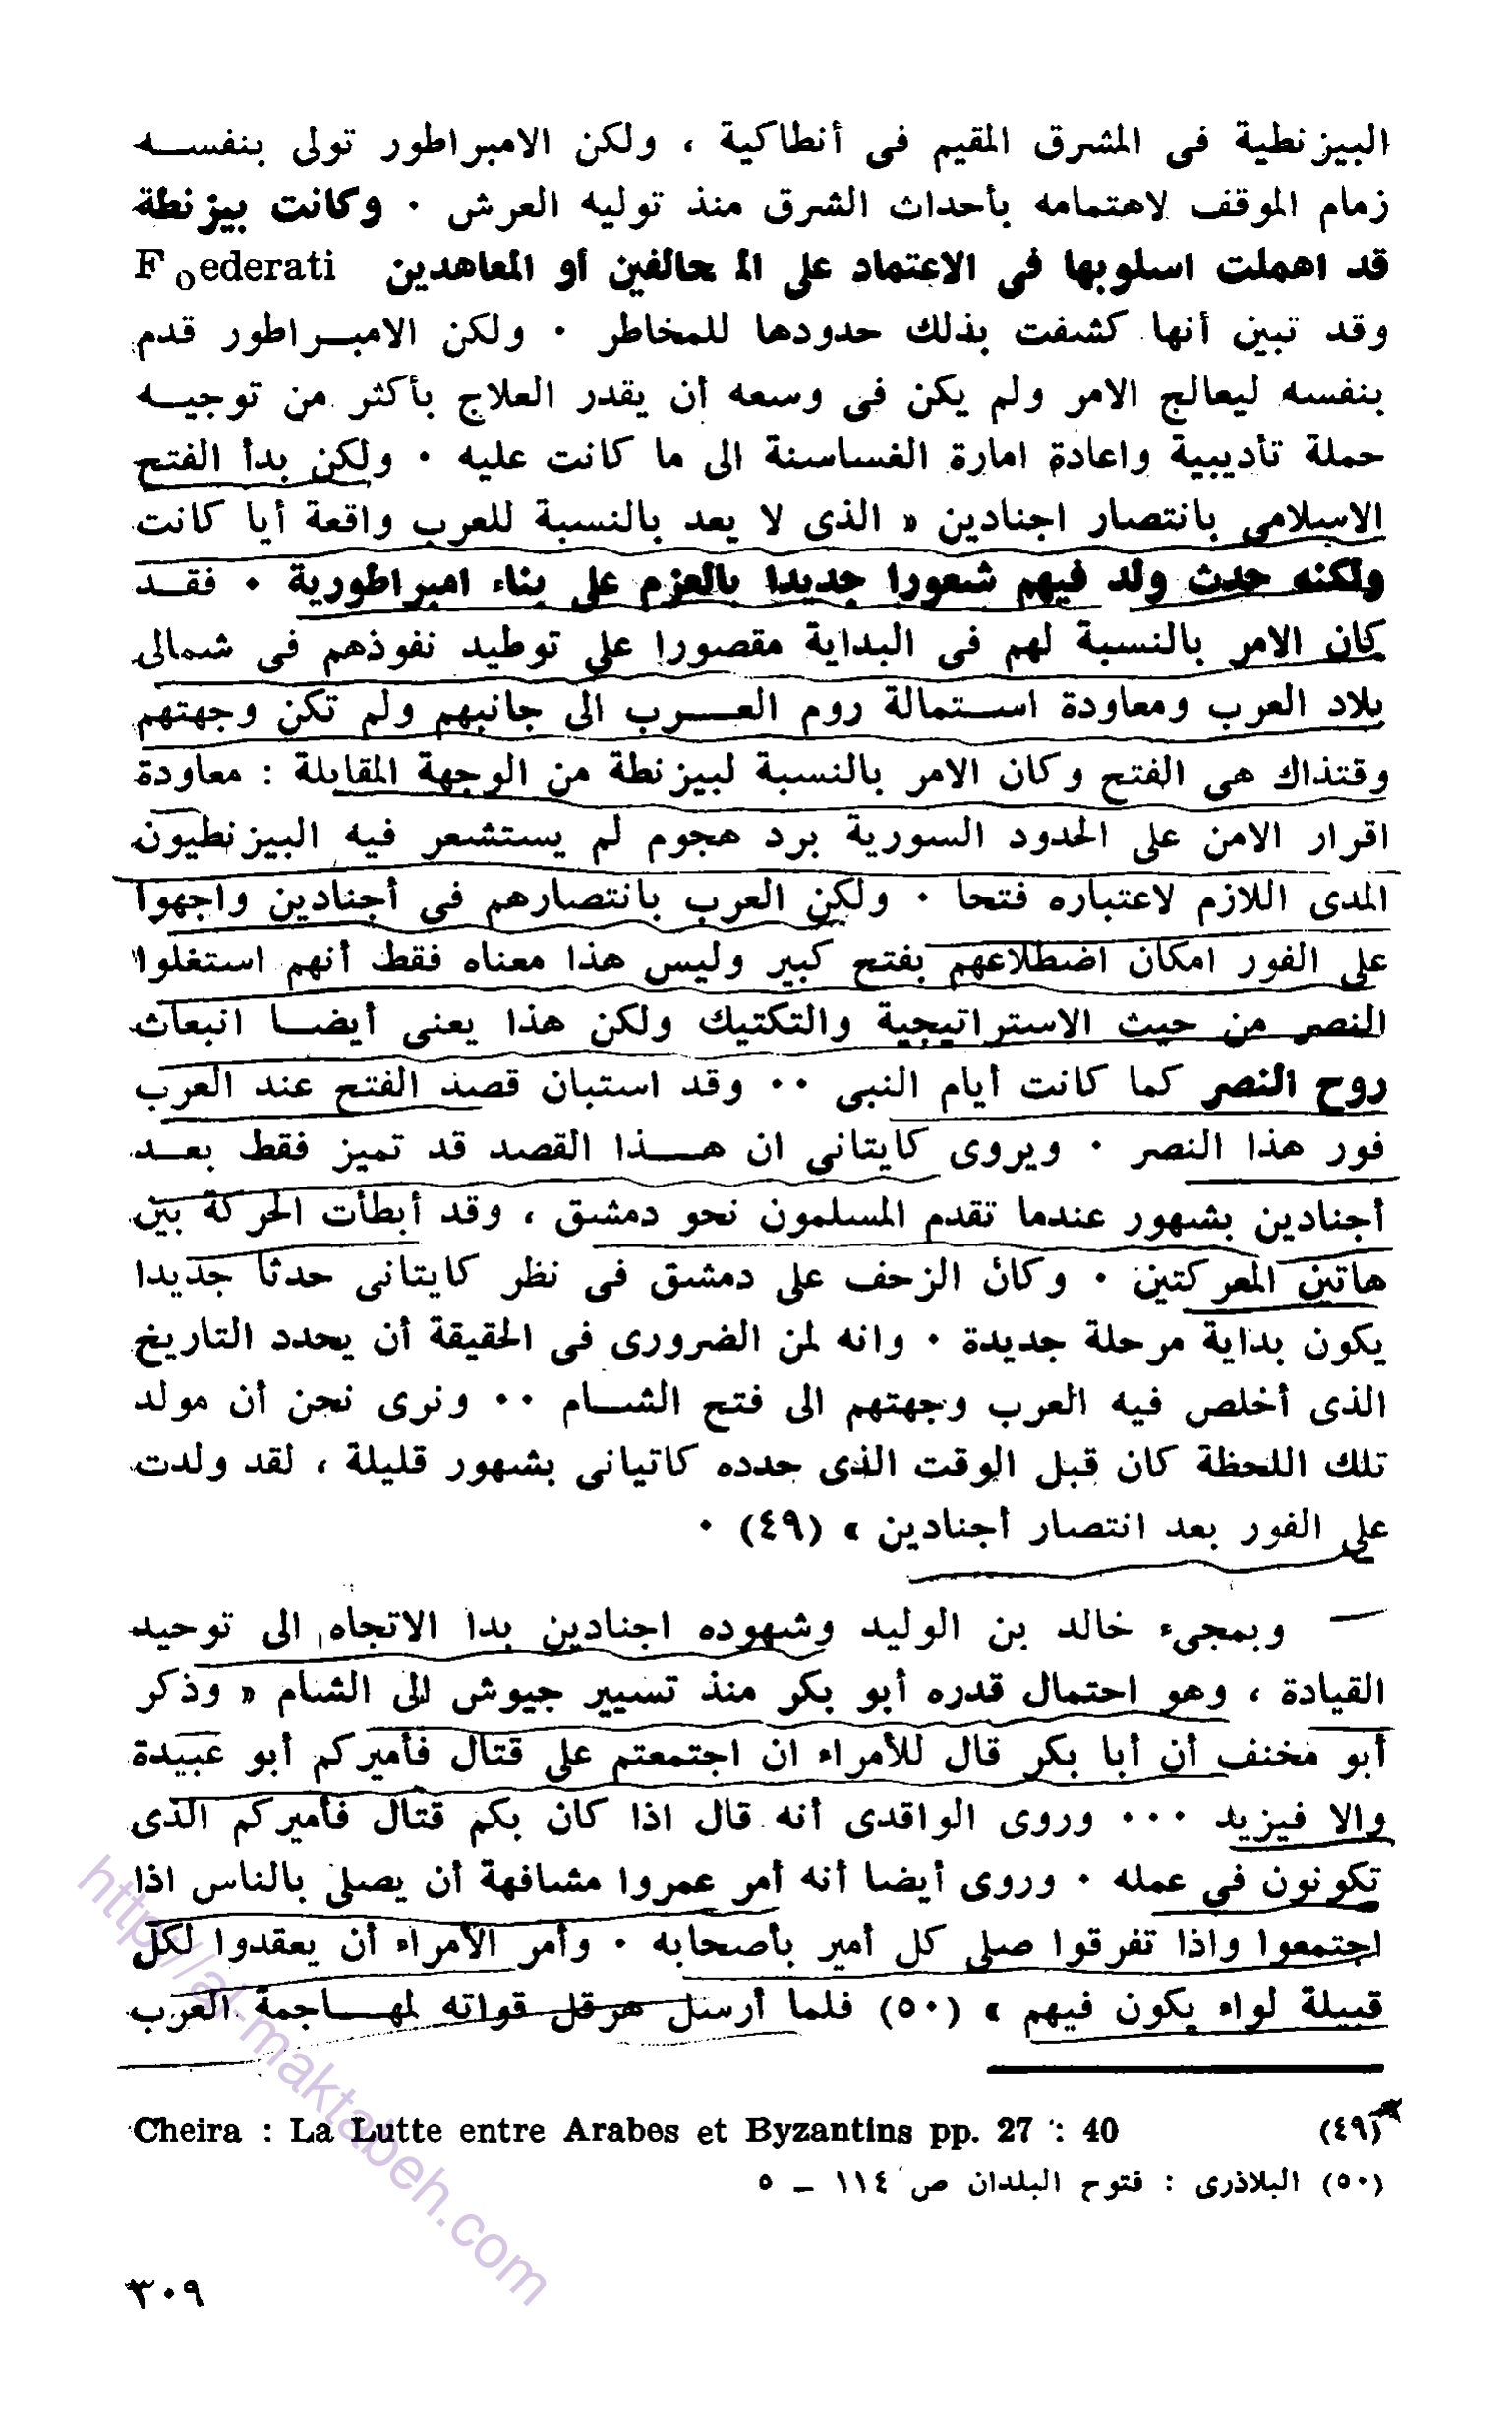 البيزنطية فى المشرق المقيم فى أنطاكية ، ولكن الامبراطور تولى بنفســه
زمام الموقف لاهتمامه بأحداث الشرق منذ توليه العرش ٠ وكانت بيزنطة
قد اهملت اسلوبها فى الاعتماد على الـ حالفين أو المعاهدين Foederati
وقد تبين أنها كشفت بذلك حدودها للمخاطر ٠ ولكن الامبــراطور قدم
بنفسه ليعالج الامر ولم يكن فى وسعه أن يقدر العلاج بأكثر من توجيــه
حملة تأديبية واعادة امارة الغساسنة الى ما كانت عليه ٠ ولكن بدأ الفتح
الاسلامى بانتصار اجنادين « الذى لا يعد بالنسبة للعرب واقعة أيا كانت
ولكنه حدث ولد فيهم شعورا جديدا بالعزم على بناء امبراطورية ٠ فقــد
كان الامر بالنسبة لهم فى البداية مقصورا على توطيد نفوذهم فى شمالى
بلاد العرب ومعاودة اســتمالة روم العـــرب الى جانبهم ولم تكن وجهتهم
وقتذاك هى الفتح وكان الامر بالنسبة لبيزنطة من الوجهة المقابلة : معاودة
اقرار الامن على الحدود السورية برد هجوم لم يستشعر فيه البيزنطيون
المدى اللازم لاعتباره فتحا ٠ ولكن العرب بانتصارهم فى أجنادين واجهوا
على الفور امكان اضطلاعهم بفتح كبير وليس هذا معناه فقط أنهم استغلوا
النصر من حيث الاستراتيجية والتكتيك ولكن هذا يعنى أيضــا انبعاث
روح النصر كما كانت أيام النبى ٠٠ وقد استبان قصد الفتح عند العرب
فور هذا النصر ٠ ويروى كايتانى ان هـــذا القصد قد تميز فقط بعــد
أجنادين بشهور عندما تقدم المسلمون نحو دمشق ، وقد أبطأت الحركة بين
هاتين المعركتين ٠ وكان الزحف على دمشق فى نظر كايتانى حدثا جديدا
يكون بداية مرحلة جديدة ٠ وانه لمن الضرورى فى الحقيقة أن يحدد التاريخ
الذى أخلص فيه العرب وجهتهم الى فتح الشــام ٠٠ ونرى نحن أن مولد
تلك اللحظة كان قبل الوقت الذى حدده كاتيانى بشهور قليلة ، لقد ولدت
على الفور بعد انتصار أجنادين » (٤٩) ٠
— وبمجىء خالد بن الوليد وشهوده اجنادين بدا الاتجاه الى توحيد
القيادة ، وهو احتمال قدره أبو بكر منذ تسيير جيوش الى الشام « وذكر
أبو مخنف أن أبا بكر قال للأمراء ان اجتمعتم على قتال فأميركم أبو عبيدة
والا فيزيد ٠٠٠ وروى الواقدى أنه قال اذا كان بكم قتال فأميركم الذى
تكونون فى عمله ٠ وروى أيضا أنه أمر عمروا مشافهة أن يصلى بالناس اذا
اجتمعوا واذا تفرقوا صلى كل أمير بأصحابه ٠ وأمر الأمراء أن يعقدوا لكل
قبيلة لواء يكون فيهم » (٥٠) فلما أرسل هرقل قواته لمهـــاجمة العرب
(٤٩) Cheira : La Lutte entre Arabes et Byzantins pp. 27 : 40
(٥٠) البلاذرى : فتوح البلدان ص ١١٤ ـ ٥
٣٠٩
http://al-maktabeh.com